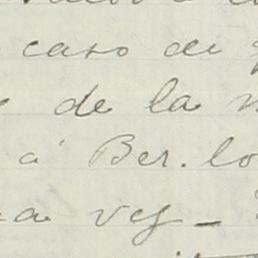 caso de
de la
á Ber. lo
vez _